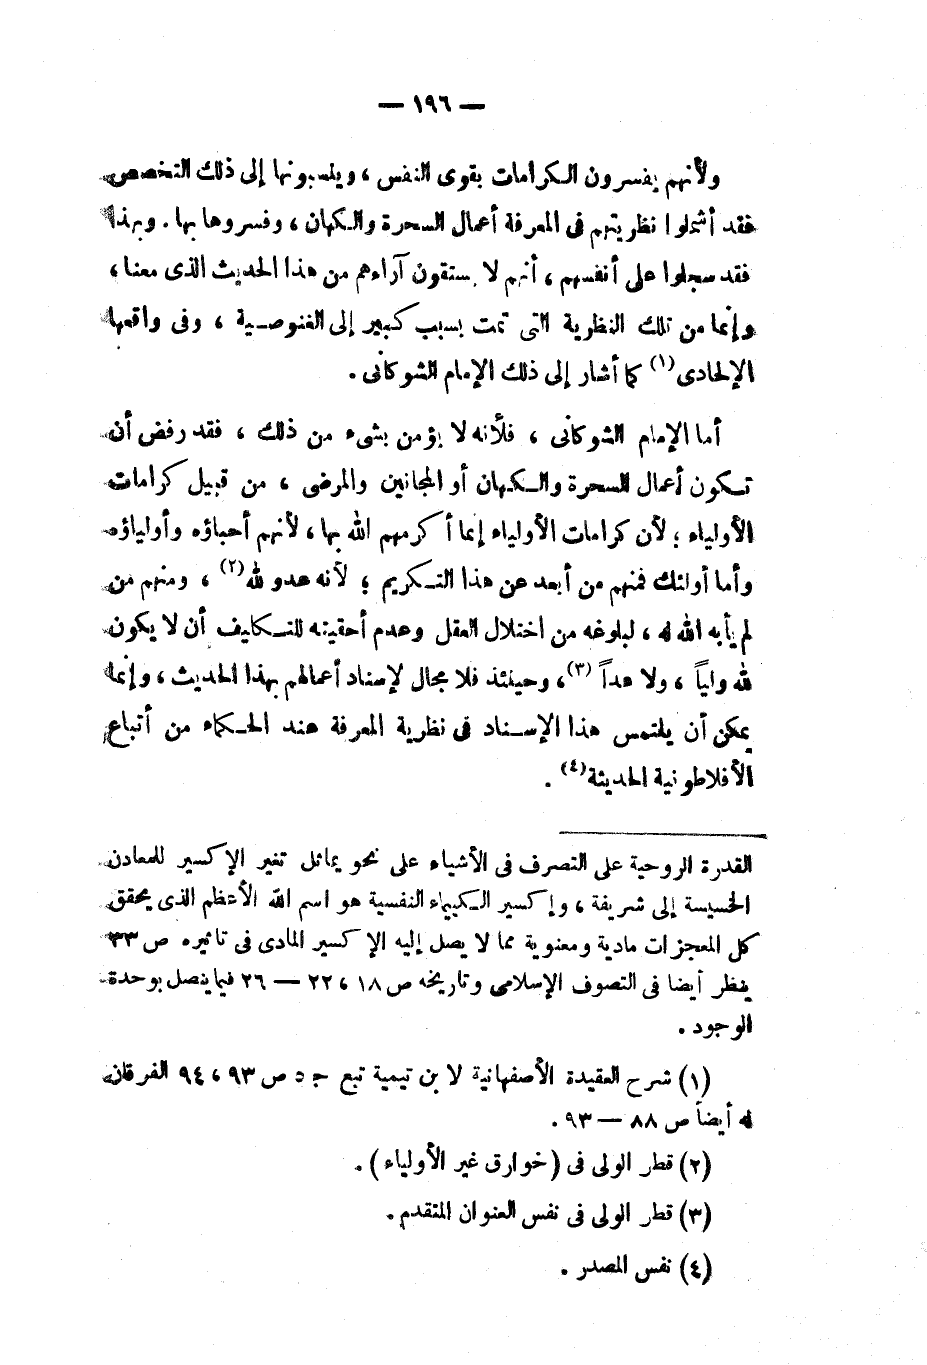 — ١٩٦ —
ولأنهم يفسرون الكرامات بقوى النفس ، وينسبونها إلى ذلك التخصص
فقد أشملوا نظريتهم فى المعرفة أعمال السحرة والكهان ، وفسروها بها . وبهذا
فقد سجلوا على أنفسهم ، أنهم لا يستقون آراءهم من هذا الحديث الذى معنا ،
وإنما من تلك النظرية التى تمت بسبب كبير إلى الغنوصية ، وفى واقعها
الإلحادى (١) كما أشار إلى ذلك الإمام الشوكانى .
أما الإمام الشوكانى ، فلأنه لا يؤمن بشىء من ذلك ، فقد رفض أن
تكون أعمال السحرة والكهان أو المجانين والمرضى ، من قبيل كرامات
الأولياء ؛ لأن كرامات الأولياء إنما أكرمهم الله بها ، لأنهم أحباؤه وأولياؤه
وأما أولئك فمنهم من أبعد عن هذا التكريم ؛ لأنه عدو لله (٢) ، ومنهم من
لم يأبه الله له ، لبلوغه من اختلال العقل وعدم أحقيته للتكاليف أن لا يكون
لله ولياً ، ولا عدواً (٣)، وحينئذ فلا مجال لإسناد أعمالهم بهذا الحديث ، وإنما
يمكن أن يلتمس هذا الإسناد فى نظرية المعرفة عند الحكماء من أتباع
الأفلاطونية الحديثة (٤) .
القدرة الروحية على التصرف فى الأشياء على نحو يماثل تغير الإكسير للمعادن
الخسيسة إلى شريفة ، وإكسير الكيمياء النفسية هو اسم الله الأعظم الذى يحقق
كل المعجزات مادية ومعنوية مما لا يصل إليه الإكسير المادى فى تأثيره ص ٣٣
ينظر أيضا فى التصوف الإسلامى وتاريخه ص ١٨ ، ٢٢ — ٢٦ فيما يتصل بوحدة
الوجود .
(١) شرح العقيدة الأصفهانية لابن تيمية تبع ج ٥ ص ٩٣ ، ٩٤ الفرقان
له أيضاً ص ٨٨ — ٩٣ .
(٢) قطر الولى فى (خوارق غير الأولياء) .
(٣) قطر الولى فى نفس العنوان المتقدم .
(٤) نفس المصدر .